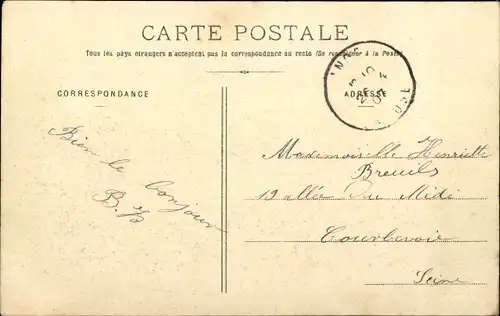 CARTE POSTALE
Tous les pays étrangers n'acceptent pas la correspondance au recto (Se renseigner à la Poste)
CORRESPONDANCE
ADRESSE
Bien le bonjour
B.
Mademoiselle Henriette
Breuils
12 allée Du Midi
Courbevoie
Seine